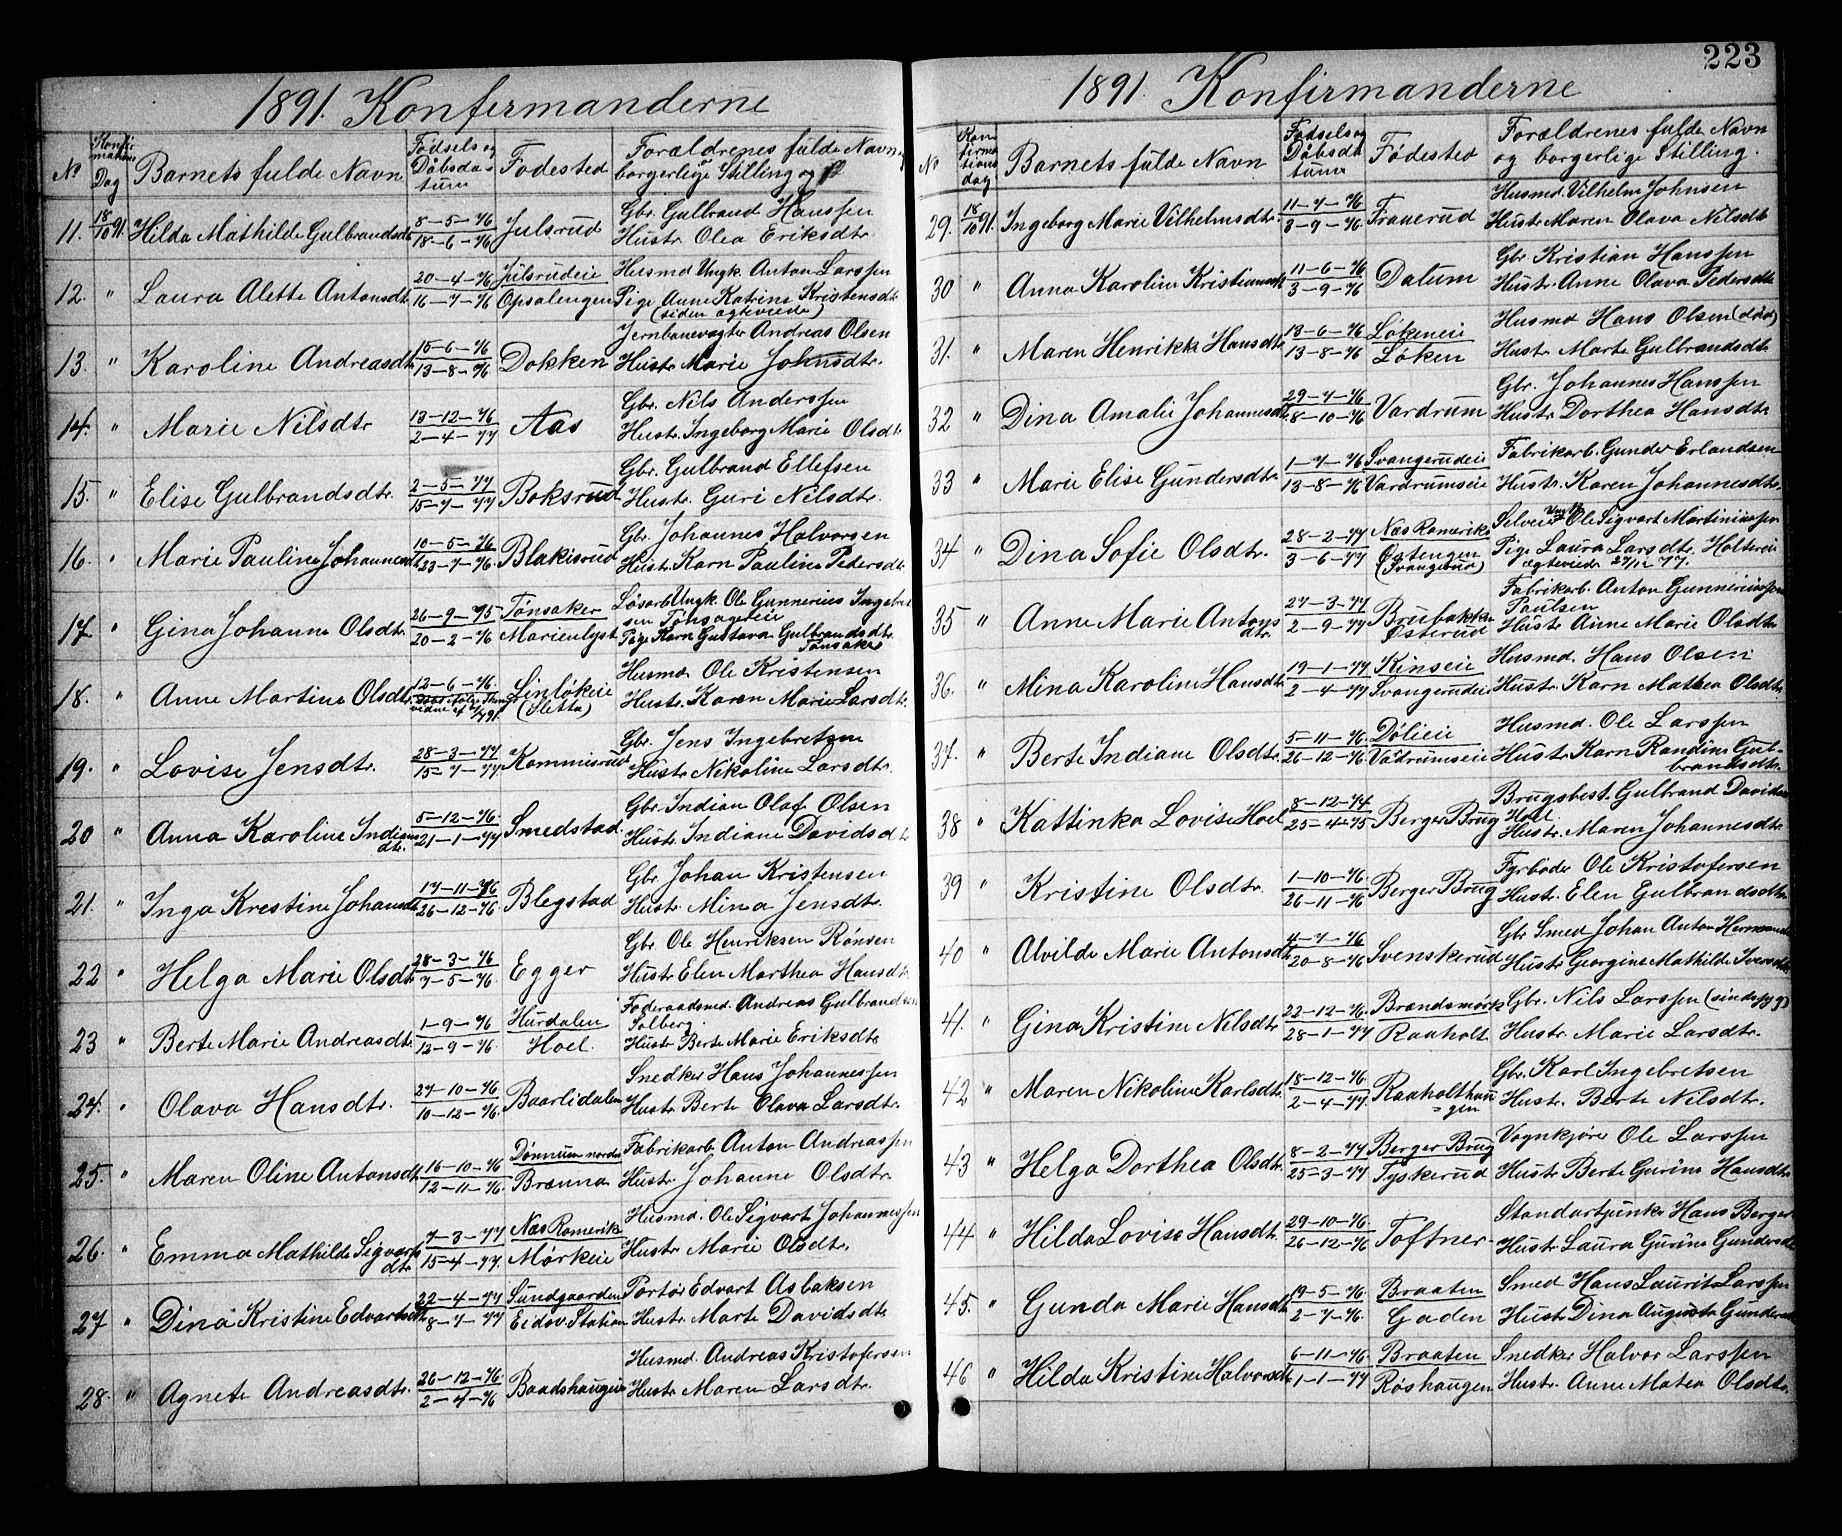 1891. Konfirmanderne
No
Konfir
mations
Dag
Barnets fulde Navn
Fødsels og
Døbsda-
tum
Fødested
Forældrenes fulde Navn
borgerlige Stilling og
11. 18/10 91. Hilda Mathilde Gulbrandsdt. 8-5-76 Julsrud Gbr. Gulbrand Hanssen
18-6-76 Hustr. Olea Eriksdtr.
12. " Laura Alette Antonsdt. 20-4-76 Julsrudeie Husmd Ungk. Anton Larssen
16-7-76 Opsalengen Pige Anne Katrine Kristensdt.
(siden ægteviede)
13. " Karoline Andreasdt. 15-6-76 Dokken Jernbanevogter Andreas Olsen
13-8-76 Hustr. Marie Johnsdtr.
14. " Marie Nilsdtr 13-12-76 Aas Gbr. Nils Anderssen
2-4-77 Hustr. Ingeborg Marie Olsdt.
15. " Elise Gulbrandsdtr. 2-5-77 Boksrud Gbr. Gulbrand Ellefsen
15-7-77 Hustr. Guri Nilsdtr.
16. " Marie Pauline Johannesdt. 10-5-76 Blakisrud Gbr. Johannes Halvorsen
23-7-76. Hustr. Karn Pauline Pedersdt.
17. " Gina Johanne Olsdtr. 26-9-75 Tønsaker Løsarb. Ungk. Ole Gunnerius Ingebret
sen Tønsagereie
20-2-76 Marienlyst Pige Karn Gustava Gulbrandsdtr.
Tønsaker
18. " Anne Martine Olsdtr. 12-6-76. Linløkeie Husmd Ole Kristensen
(Sletta) Hustr. Karen Marie Larsdtr.
19. " Lovise Jensdtr. 28-3-77 Kommisrud Gbr. Jens Ingebretsen
15-7-77 Hustr. Nikoline Larsdtr.
20 " Anna Karoline Indians
dtr. 5-12-76. Smedstad Gbr. Indian Olaf Olsen
21-1-77 Hustr. Indiane Davidsdtr
21. " Inga Krestine Johansdt. 17-11-76 Blegstad Gbr. Johan Kristensen
26-12-76 Hustr. Mina Jensdtr.
22 " Helga Marie Olsdt. 28-3-76 Egger Gbr. Ole Henriksen Rønsen
7-5-76. Hustr. Elen Marthea Hansdt.
23 " Berte Marie Andreasdt. 1-9-76 Hurdalen Føderaadsmd. Andreas Gulbrandsen
Solberg.
12-9-76. Hoel. Hustr. Berte Marie Eriksdtr
24. " Olava Hansdtr. 27-10-76 Baarlidalen Snedker Hans Johannessen
10-12-76. Hustr. Berte Olava Larsdtr.
25. " Maren Oline Antonsdt. 16-10-76 Dønnum nordre Fabrikarb. Anton Andreassen
12-11-76. Brænna Hustr. Johanne Olsdtr.
26. " Emma Mathilde Sigvarts
dtr. 7-3-77 Næs Romerike Husmd. Ole Sigvart Johannessen
15-4-77. Mørkeie Hustr. Marie Olsdtr.
27 " Dina Kristine Edvartsdt. 22-4-77 Sundgaarden Portør Edvart Asbaksen
8-7-77 Eidsv. Station Hustr. Marte Davidsdtr
28. " Agnete Andreasdtr. 26-12-76 Baadshaugeie Husmd. Andreas Kristofersen
2-4-76 Hustr. Maren Larsdtr.
223
1891. Konfirmanderne
No
Kon
firma
tions
dag
Barnets fulde Navn
Fødsels og
Døbsda
tum
Fødested
Forældrenes fulde Navn
og borgerlige Stilling.
29. 18/10 91. Ingeborg Marie Vilhelmsdtr. 11-7-76 Frauerud Husmd. Vilhelm Johnsen
3-9-76. Hustr. Maren Olava Nilsdt
30 " Anna Karoline Kristiansdt. 11-6-76 Datum Gbr Kristian Hanssen
3-9-76 Hustr. Anne Olava Pedersdtr
31. " Maren Henrikke Hansdtr. 13-6-76 Løkeneie Husmd Hans Olsen (død)
13-8-76 Løken Hustr. Marte Gulbrandsdtr
32 " Dina Amalie Johannesdt. 29-7-76 Vardrum Gbr. Johannes Hanssen
8-10-76 Hustr. Dorthea Hansdtr
33 " Marie Elise Gundersdtr. 1-7-76 Svangerudeie Fabrikarb. Gunder Erlandsen
13-8-76 Vardrumseie Hustr. Karen Johannesdtr.
34 " Dina Sofie Olsdtr. 28-2-77 Næs Romerike Selveier Ungk Ole Sigvart Martiniussen
3-6-77 Østengen Pige Laura Larsdtr. Holtereie
(Svangerud) ægteviede 27/12 77.
35 " Anne Marie Antons
dtr. 27-3-77 Brubakke Fabrikarb. Anton Gunneriussen
Paulsen
2-9-77 Østerud Hustr. Anne Marie Olsdtr
36. " Mina Karoline Hansdtr. 19-1-77 Kinseie Husmd. Hans Olsen
2-4-77 Svangerudeie Hustr. Karn Mathea Olsdtr.
37. " Berte Indiane Olsdtr. 5-11-76 Dølieie Husmd. Ole Larssen
26-12-76 Vadrumseie Hustr. Karn Randine Gul-
brandsdtr.
38 " Kattinka Lovise Hoel 8-12-74 Berger Brug Brugsbest. Gulbrand Davidsen
Hoel.
25-4-75 Hustr. Maren Johannesdtr
39 " Kristine Olsdtr. 1-10-76. Berger Brug Fyrbøder Ole Kristofersen
26-11-76 Hustr. Elen Gulbrandsdtr.
40 " Alvilde Marie Antonsdt. 4-7-76 Svenskerud Gbr Smed Johan Anton Hermansen
20-8-76 Hustr. Georgine Mathilde Iversdt.
41. " Gina Kristine Nilsdtr 22-12-76. Brændsmørk Gbr. Nils Larssen (sindssyg)
28-1-77 Raaholt Hustr. Marie Larsdtr.
42 " Maren Nikoline Karlsdtr. 18-12-76. Raaholthau
=gen Gbr. Karl Ingebretsen
2-4-77. Hustr. Berte Nilsdtr.
43 " Helga Dorthea Olsdtr. 8-2-77 Berger Brug Vognkjører Ole Larssen
25-3-77 Tyskerud Hustr. Berte Gurine Hansdtr.
44 " Hilda Lovise Hansdt. 29-10-76 Toftner Standartjunker Hans Berger
26-12-76 Hustr. Laura Gurine Gundersdt.
45. " Gunda Marie Hansdt. 19-5-76. Braaten Smed Hans Laurits Larssen
2-7-76. Gaden Hustr. Dina Augusta Gundersdt
46 " Hilda Kristine Halvorsdt. 6-11-76 Braaten Snedker Halvor Larssen
1-1-77 Røshaugen Hustr. Anne Matea Olsdtr.